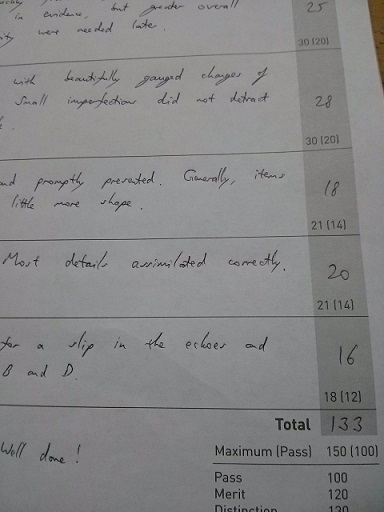 in evidence, but greater overall
25
were needed later.
30 (20)
with beautifully gauged changes of
small imperfections did not detract
28
30 (20)
and promptly presented. Generally, items
18
little more shape.
21 (14)
Most details assimilated correctly.
20
21 (14)
for a slip in the echoes and
16
B and D.
18 (12)
Total 133
Well done!
Maximum (Pass) 150 (100)
Pass 100
Merit 120
Distinction 130